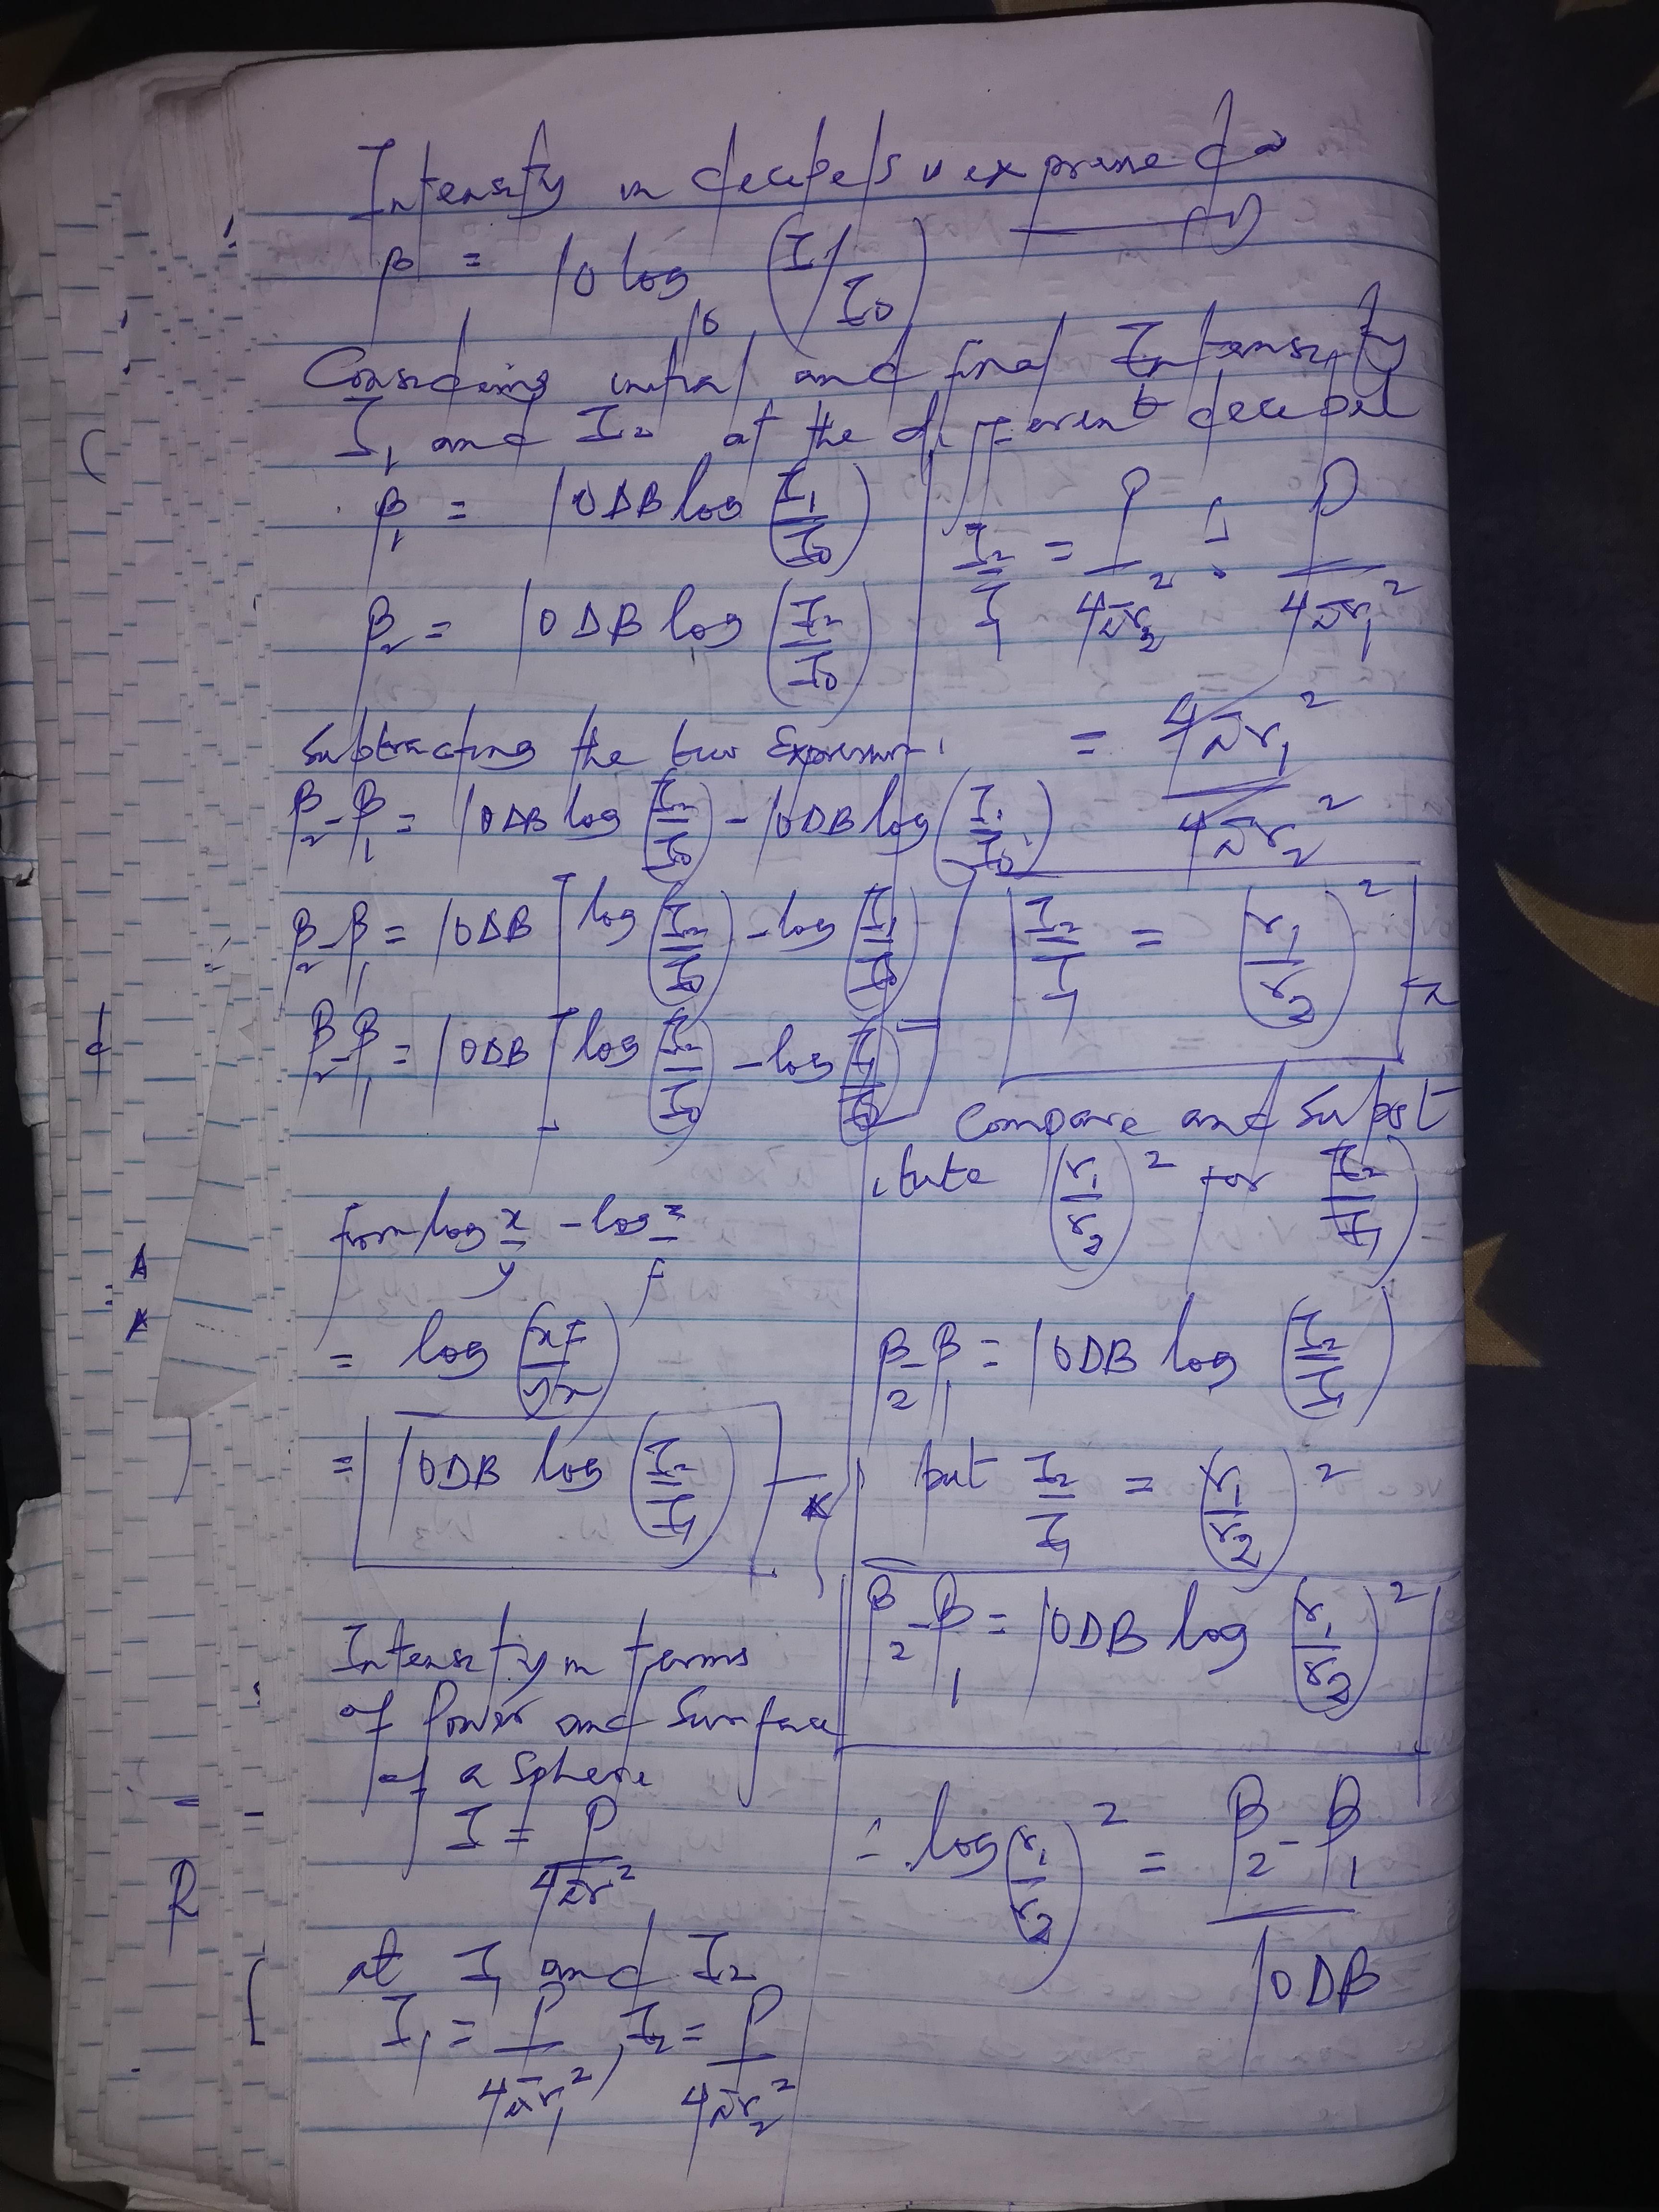 Intensity in decibels is expressed as
β = 10 log₁₀ (I/I₀) → (1)
Considering initial and final Intensity
I₁ and I₂ at the different decibel
β₁ = 10DB log (I₁/I₀)
β₂ = 10DB log (I₂/I₀)
Subtracting the two Expression
β₂-β₁ = 10DB log (I₂/I₀) - 10DB log (I₁/I₀)
β₂-β₁ = 10DB [log (I₂/I₀) - log (I₁/I₀)
β₂-β₁ = 10DB [log (I₂/I₀) - log (I₁/I₀)]
from log x/y - log z/f
= log (xf/yz)
= 10DB log (I₂/I₁)
Intensity in terms
of Power and Surface
of a Sphere
I = P/4πr²
at I₁ and I₂
I₁ = P/4πr₁², I₂ = P/4πr₂²
I₂/I₁ = P/4πr₂² ÷ P/4πr₁²
= 4πr₁²/4πr₂²
I₂/I₁ = (r₁/r₂)²
Compare and Subst
itute (r₁/r₂)² for (I₂/I₁)
β₂-β₁ = 10DB log (I₂/I₁)
but I₂/I₁ = (r₁/r₂)²
β₂-β₁ = 10DB log (r₁/r₂)²
∴ log (r₁/r₂)² = β₂-β₁/10DB